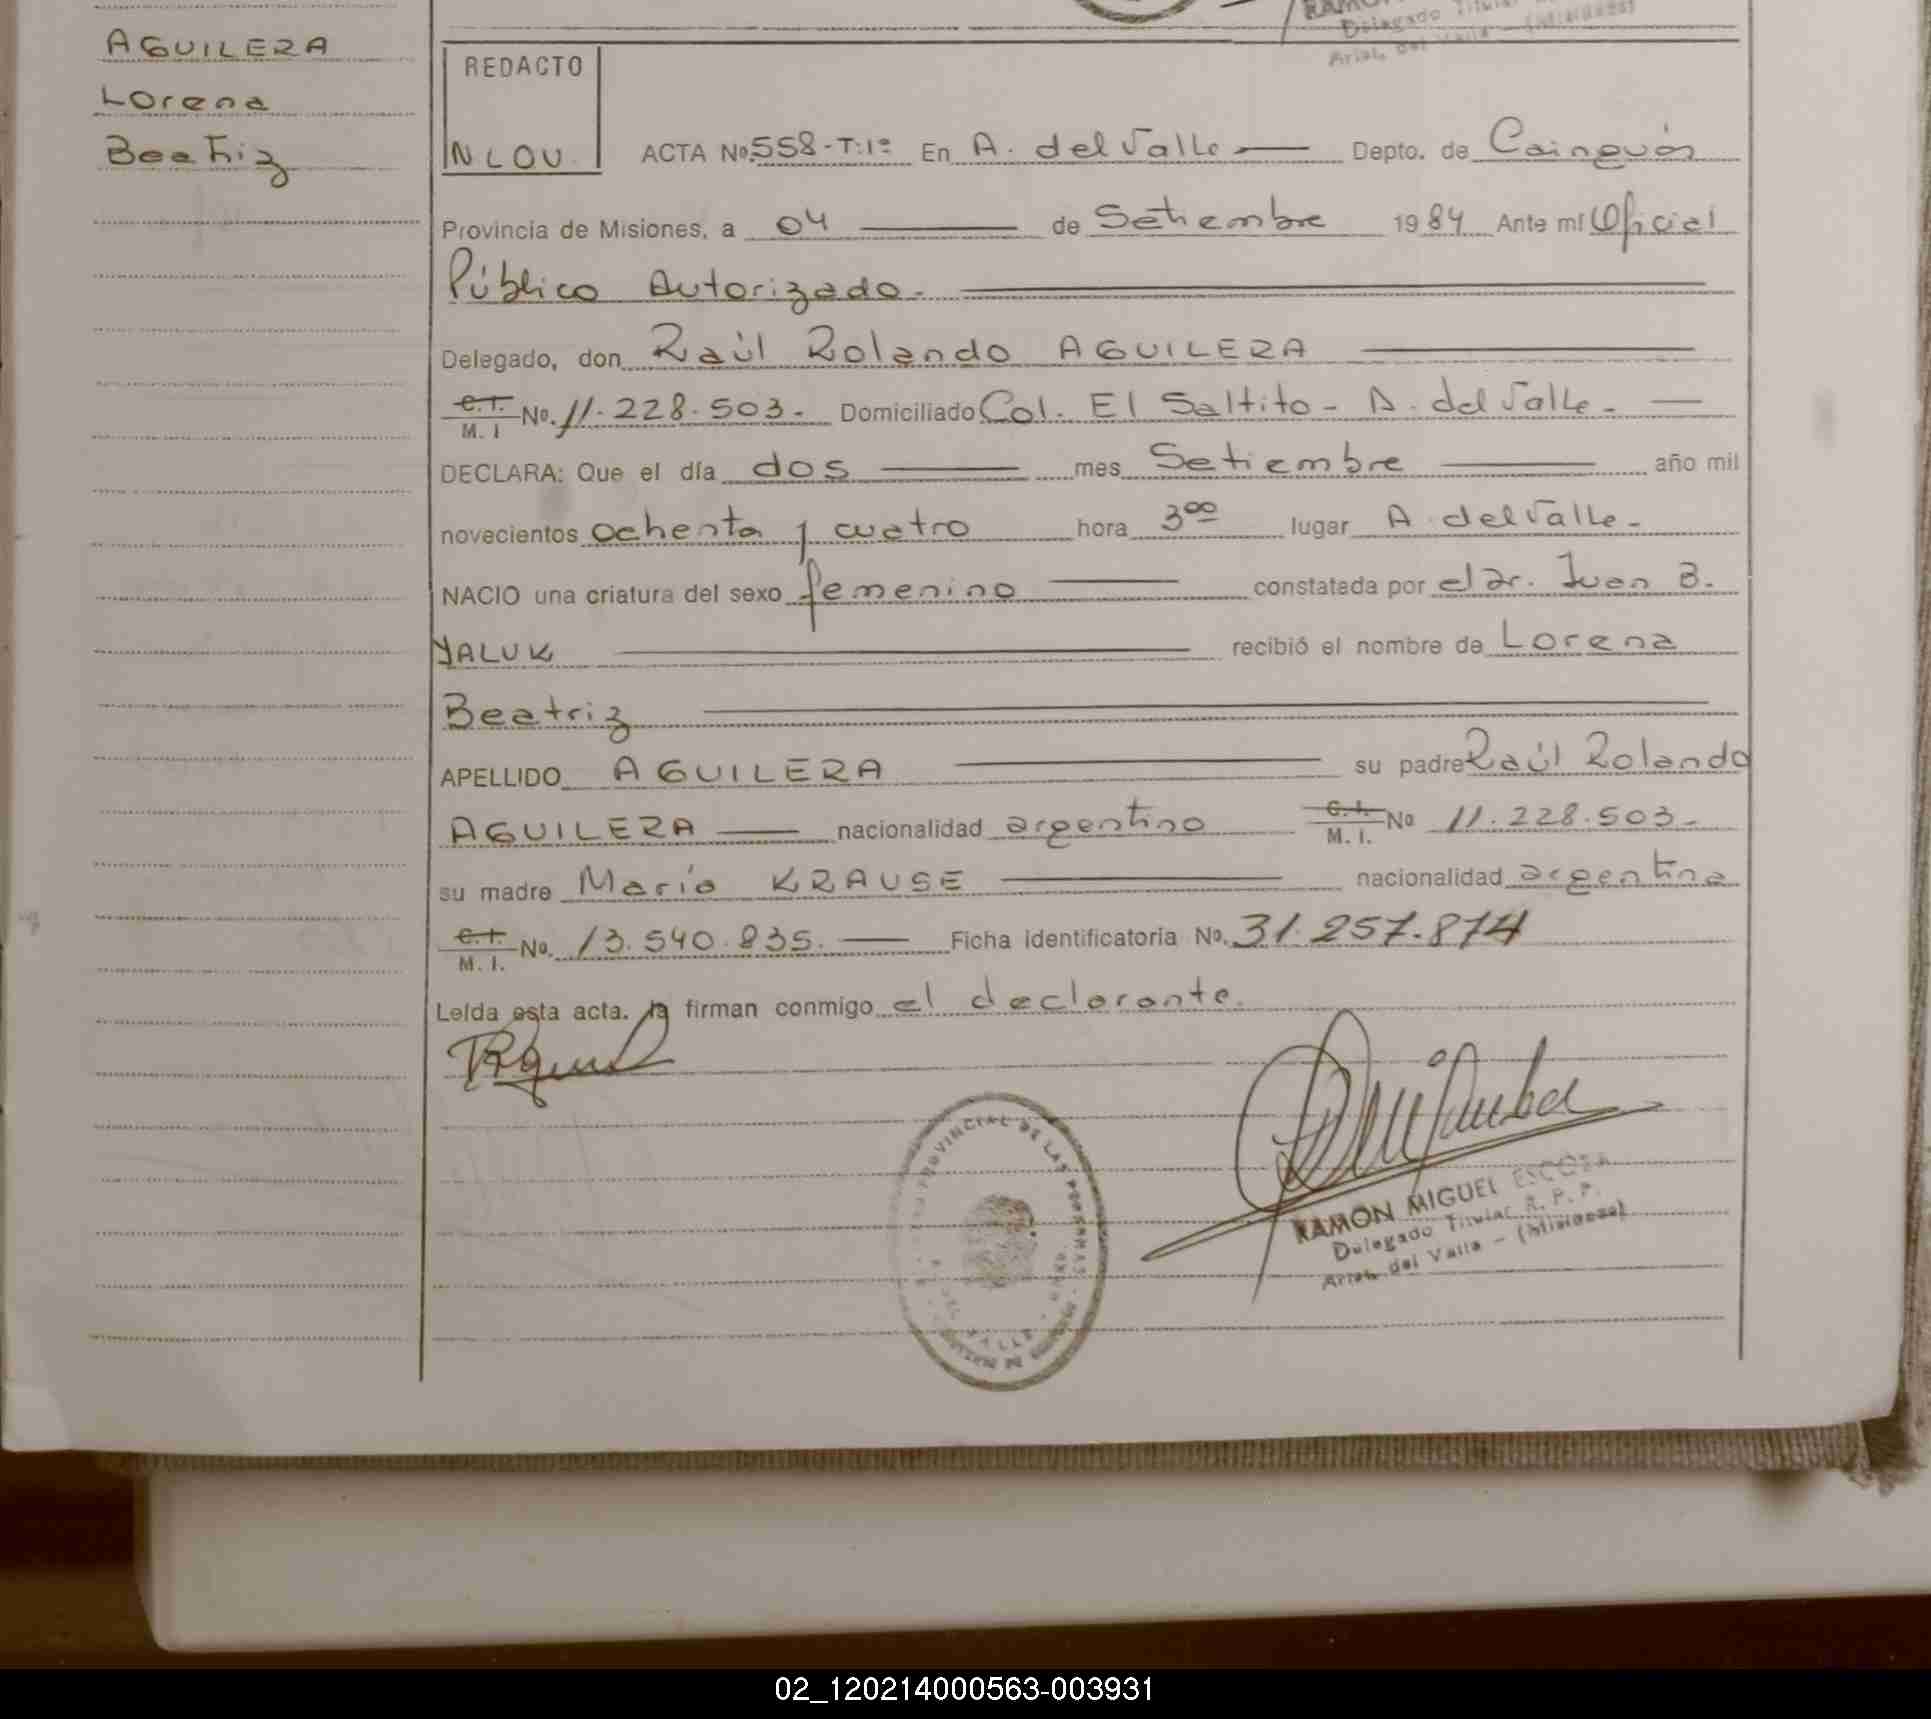 AGUILERA
Lorena
Beatriz
Delegado Titular
Arist. del Valle - (Misiones)
REDACTO
NLOU.
ACTA Nº 558-T:1º En A. del Valle Depto. de Cainguás
Provincia de Misiones, a 04 de Setiembre 1984 Ante mí Oficial
Público Autorizado.
Delegado, don Raúl Rolando AGUILERA
C.I. M. I No. 11.228.503. Domiciliado Col. El Saltito - A. del Valle.
DECLARA: Que el día dos mes Setiembre año mil
novecientos ochenta y cuatro hora 3ºº lugar A. del Valle.
NACIO una criatura del sexo femenino constatada por el Dr. Juan B.
YALUK recibió el nombre de Lorena
Beatriz
APELLIDO AGUILERA su padre Raúl Rolando
AGUILERA nacionalidad argentino C.I. M. I. No 11.228.503.
su madre María KRAUSE nacionalidad argentina
C.I. M. I. No. 13.540.835. Ficha identificatoria No. 31.257.874
Leída esta acta. la firman conmigo el declarante.
PROVINCIAL DE LAS PERSONAS
VALLE
RAMON MIGUEL ESCOBA
Delegado Titular R. P. P.
Arist. del Valle - (Misiones)
02_120214000563-003931